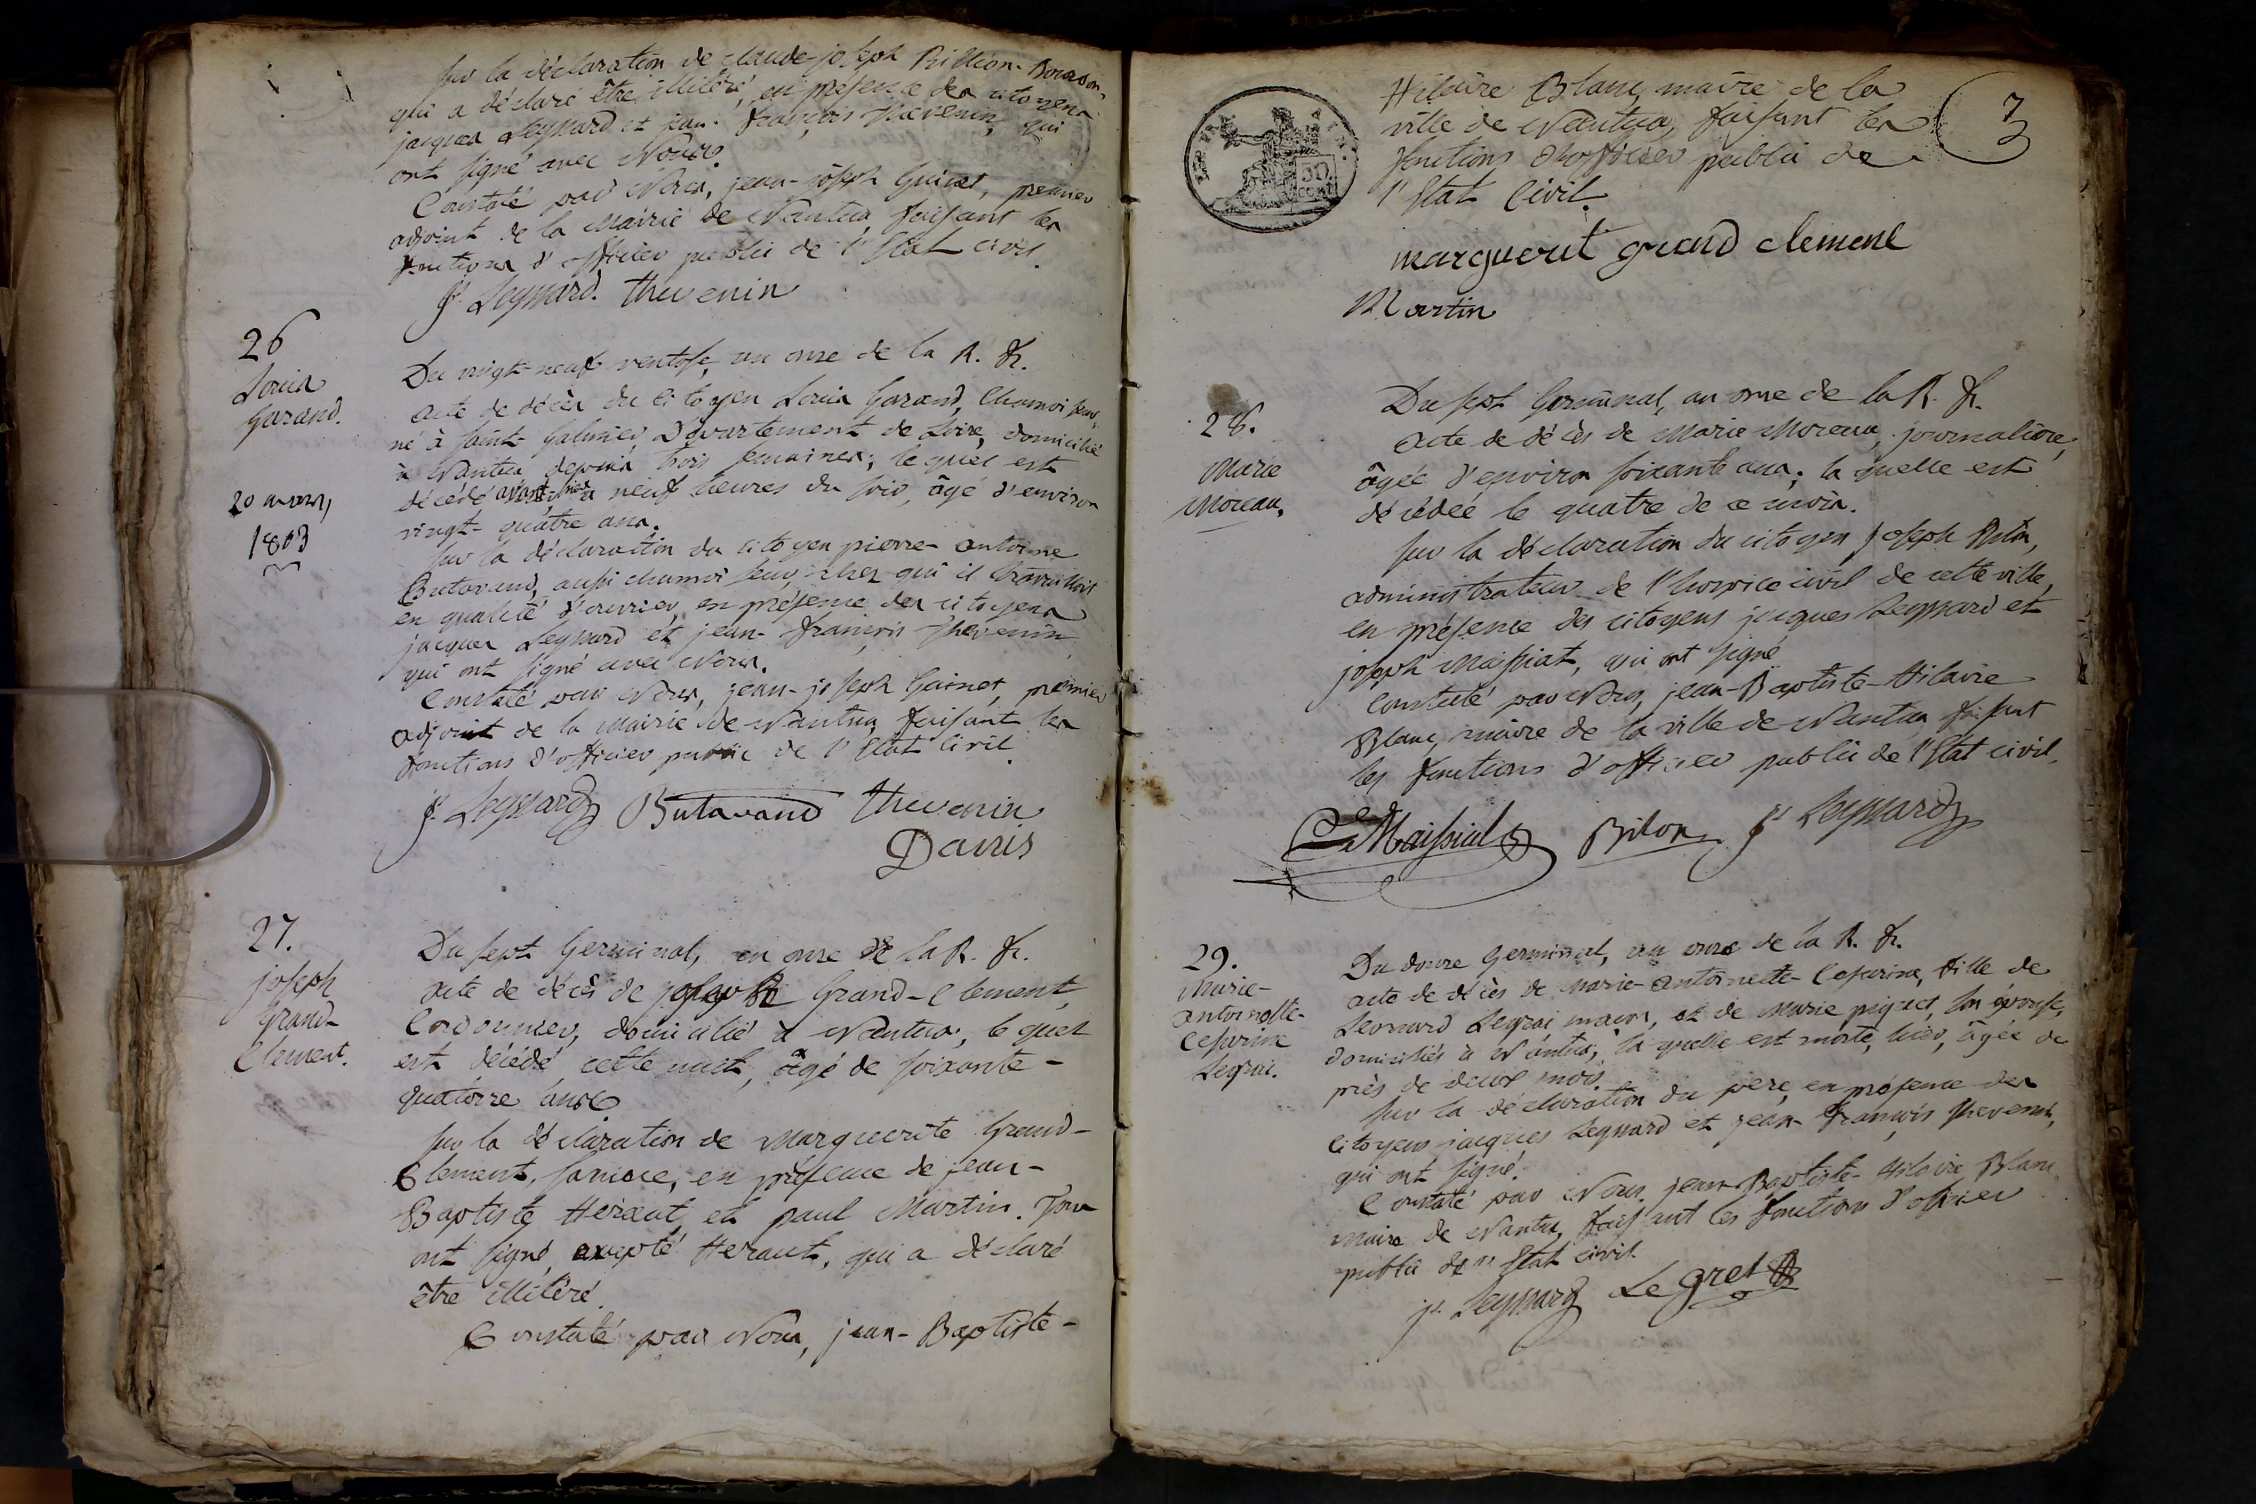 Sur la déclaration de claude-joseph Billion-Bourbon,
qui a déclaré être illitéré, en présence des citoyens
jacques Leyssard et jean-françois Thévenin, qui
ont signé avec Nous.
Constaté par Nous, jean-joseph Guinet, premier
adjoint de la Mairie de Nantua faisant les
fonctions d'officier public de l'Etat civil.
Js. Leyssard. thevenin
26
Louis
Garand.
20 mars,
1803
Du vingt-neuf ventose, an onze de la R. fr.
acte de décès du citoyen Louis Garand, Chamoiseur,
né à Saint-Galmier, Département de Loire, domicilié
à Nantua depuis trois semaines; lequel est
décédé avant hier à neuf heures du soir, âgé d'environ
vingt-quatre ans.
Sur la déclaration du citoyen pierre-antoine
Butavand, aussi chamoiseur, chez qui il travailloit
en qualité d'ouvrier, en présence des citoyens
jacques Leyssard et jean-françois Thevenin,
qui ont signé avec Nous.
Constaté par Nous, jean-joseph Guinet, premier
adjoint de la Mairie de Nantua, faisant les
fonctions d'officier public de l'Etat Civil.
Js. Leyssard Butavand thevenin
27.
joseph
Grand-
Clement.
Du sept Germinal, an onze de la R. fr.
acte de décès de joseph Grand-Clement,
Cordonnier, domicilié à Nantua, lequel
est décédé cette nuit, âgé de soixante-
quatorze ans
Sur la déclaration de Marguerite Grand-
Clement, en présence de jean-
Baptiste Héraut et paul Martin.
ont signé, excepté Heraut, qui a déclaré
être illitéré.
Constaté par Nous, jean-Baptiste-
3
Hilaire Blanc, maire de la
ville de Nantua, faisant les
fonctions d'officier public de
l'Etat Civil.
marguerit grand clement
Martin
28.
Marie
Moreau.
Du sept Germinal, an onze de la R. fr.
acte de décès de Marie Moreau, journalière,
âgée d'environ soixante ans; la quelle est
décédée le quatre de ce mois.
Sur la déclaration du citoyen joseph Bilon,
administrateur de l'hospice civil de cette ville,
en présence des citoyens jacques Leyssard et
joseph Maissiat, qui ont signé
Constaté par Nous, jean-Baptiste-Hilaire
Blanc, maire de la ville de Nantua faisant
les fonctions d'officier public de l'Etat civil.
Maissiat Bilon Js Leyssard
29.
Marie-
antoinette-
Cesarine
Legrai.
Du douze Germinal, an onze de la R. fr.
acte de décès de Marie-antoinette-Cesarine, fille de
Leonard Legrai maçon, et de Marie piquet, son épouse,
domiciliés à Nantua; la quelle est morte, hier, âgée de
près de deux mois.
Sur la déclaration du pere, en présence des
citoyens jacques Leyssard et jean-françois Thevenin,
qui ont signé.
Constaté par Nous, jean-Baptiste-Hilaire Blanc
maire de Nantua, faisant les fonctions d'officier
public de l'Etat civil.
js. Leyssard Legret